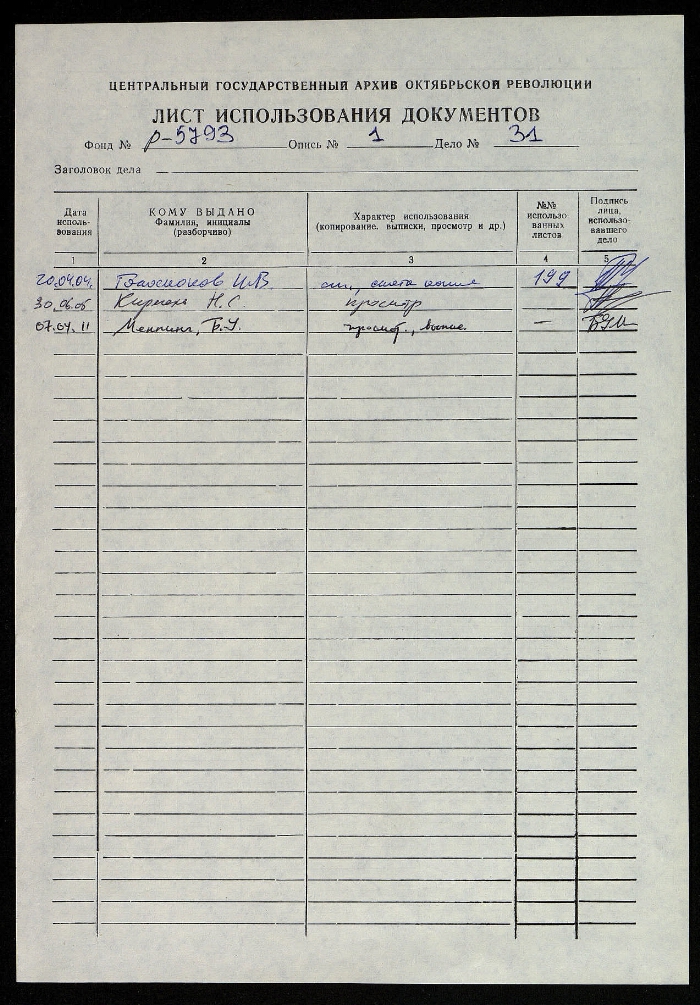 ЦЕНТРАЛЬНЫЙ ГОСУДАРСТВЕННЫЙ АРХИВ ОКТЯБРЬСКОЙ РЕВОЛЮЦИИ
ЛИСТ ИСПОЛЬЗОВАНИЯ ДОКУМЕНТОВ
Фонд № р-5793 Опись № 1 Дело № 31
Заголовок дела
Дата исполь-зования КОМУ ВЫДАНО Фамилия, инициалы (разборчиво) Характер использования (копирование, выписки, просмотр и др.) №№ использо-ванных листов Подпись лица, использо-вавшего дело
1 2 3 4 5
20.04.04. И.В. 199
30.06.05 Н.С. просмотр
07.04.11 Меннинг, Б.У. просмот., выпис. —